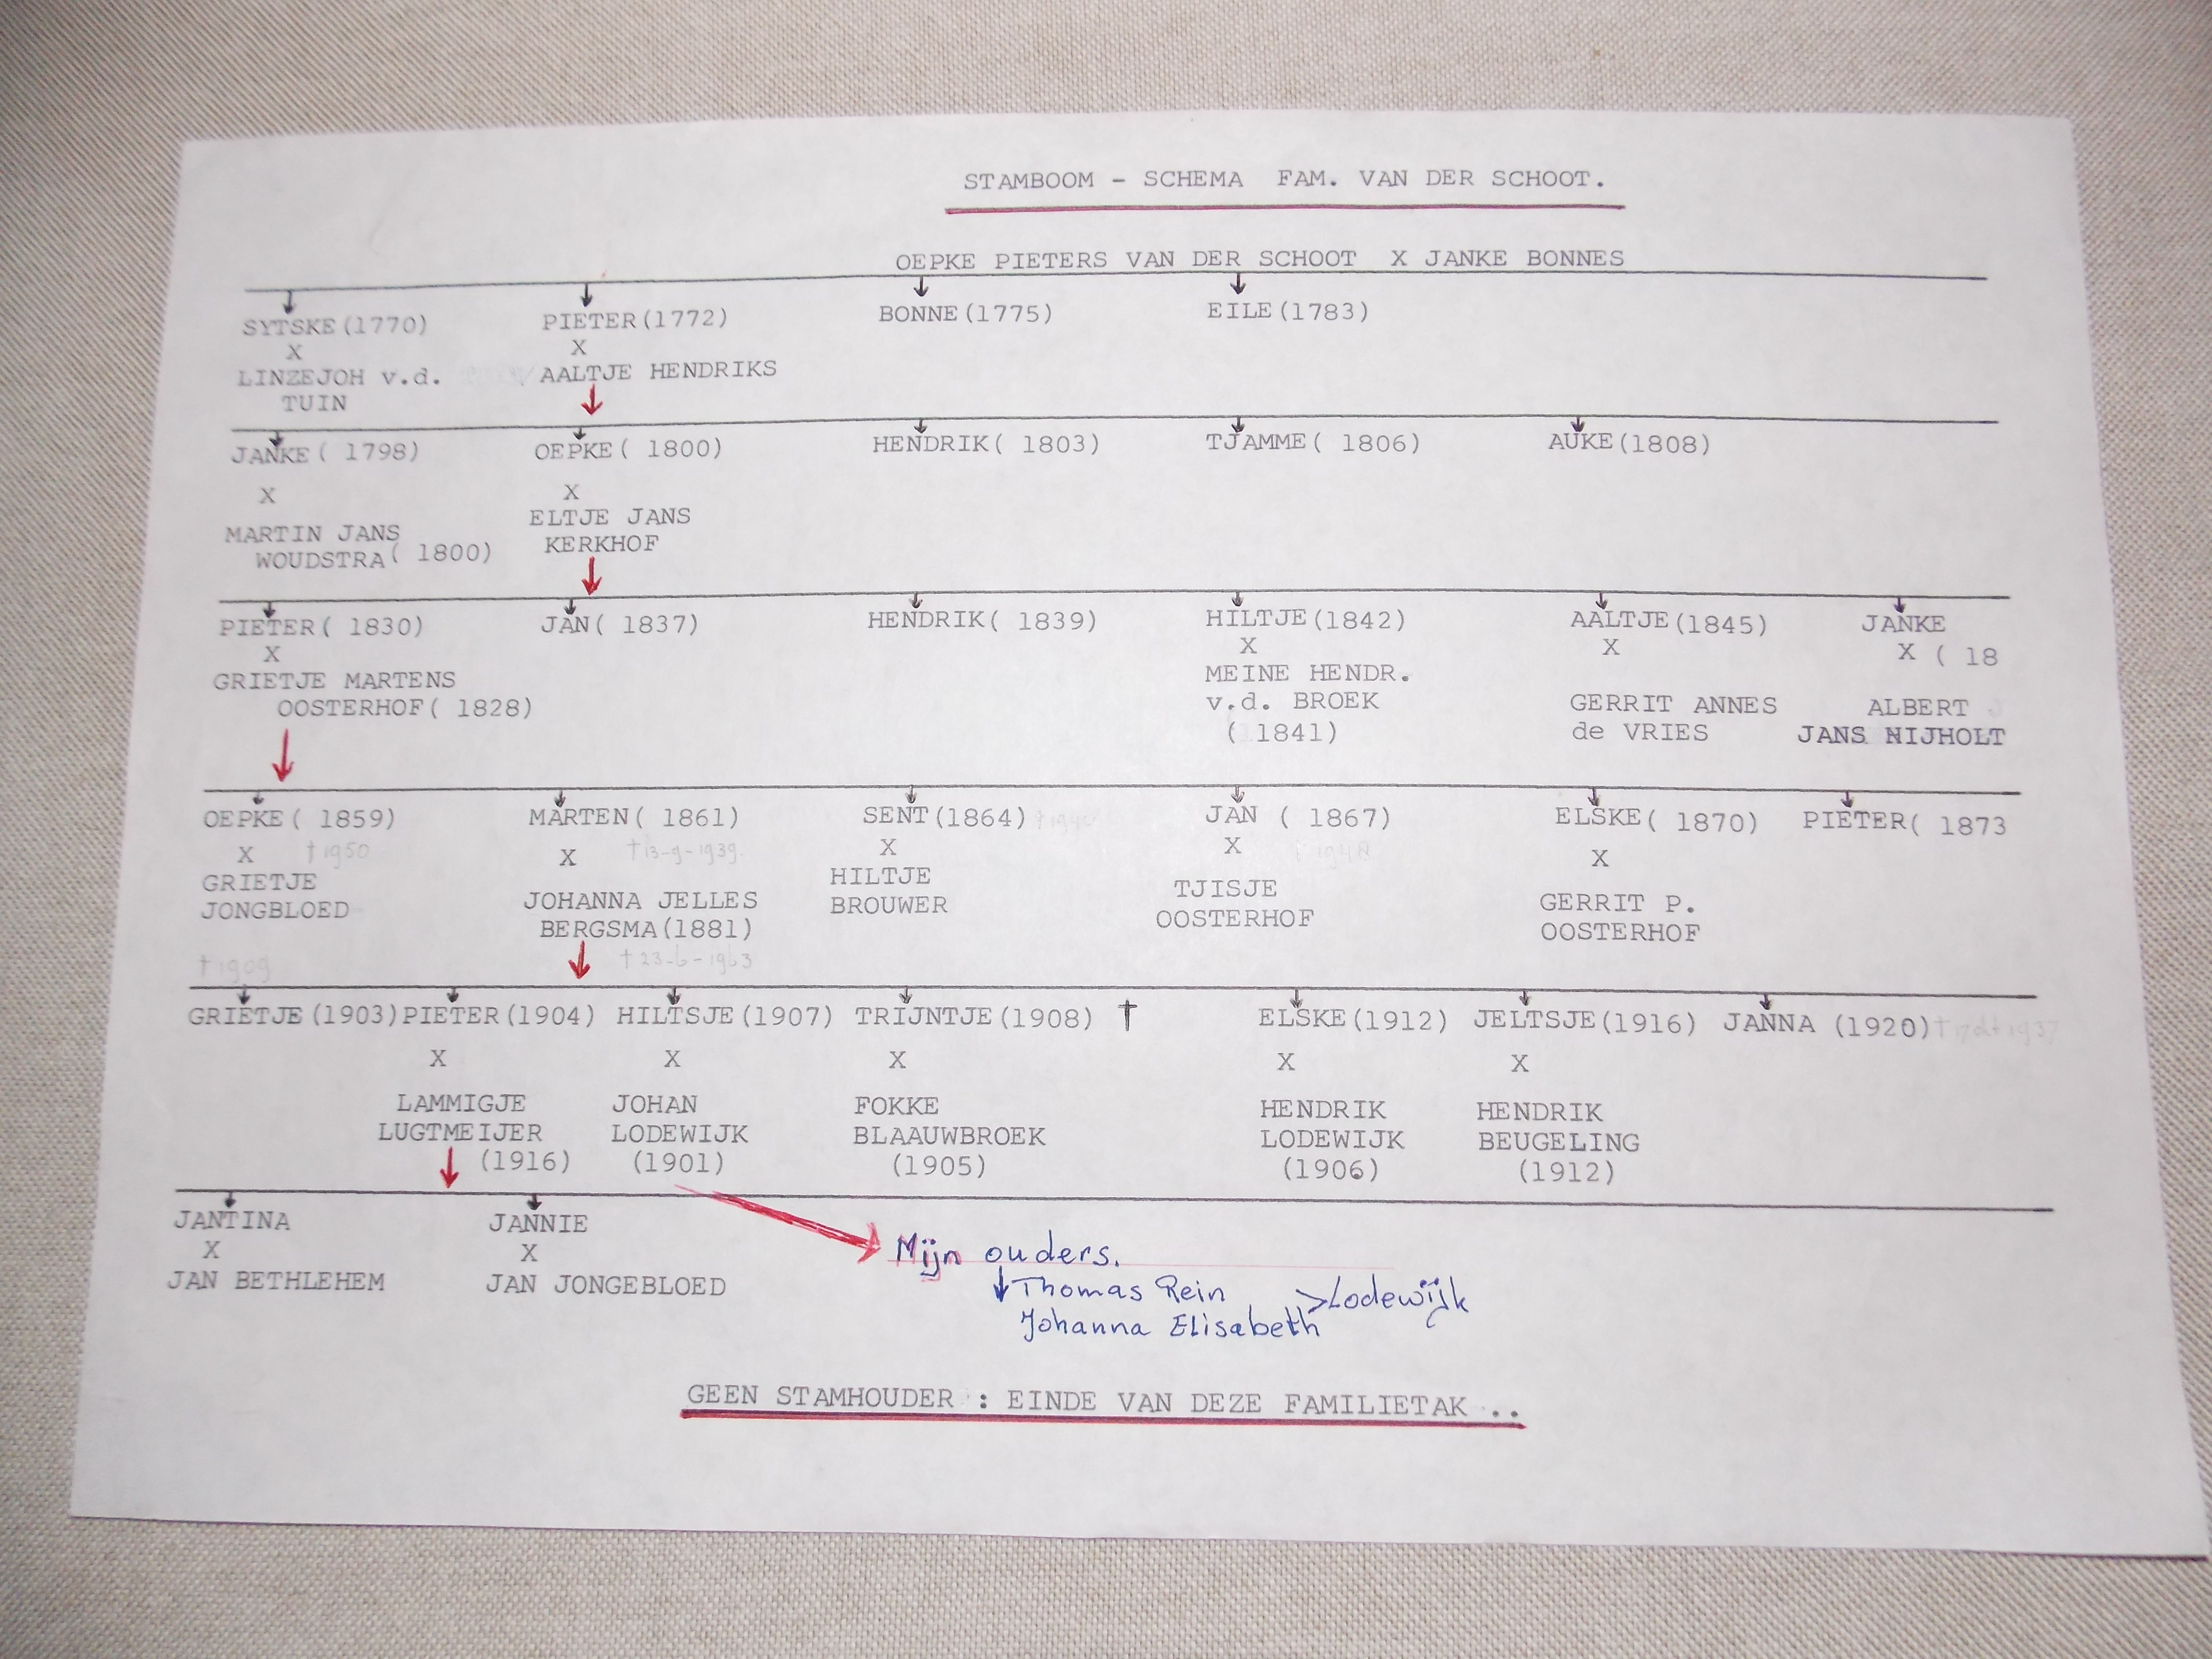 STAMBOOM - SCHEMA FAM. VAN DER SCHOOT.
OEPKE PIETERS VAN DER SCHOOT X JANKE BONNES
SYTSKE (1770) PIETER (1772) BONNE (1775) EILE (1783)
X X
LINZEJOH v.d. AALTJE HENDRIKS
TUIN
JANKE ( 1798) OEPKE ( 1800) HENDRIK ( 1803) TJAMME ( 1806) AUKE (1808)
X X
MARTIN JANS ELTJE JANS
WOUDSTRA ( 1800) KERKHOF
PIETER ( 1830) JAN ( 1837) HENDRIK ( 1839) HILTJE (1842) AALTJE (1845) JANKE
X X X X ( 18
GRIETJE MARTENS MEINE HENDR.
OOSTERHOF ( 1828) v.d. BROEK GERRIT ANNES ALBERT
( 1841) de VRIES JANS NIJHOLT
OEPKE ( 1859) MARTEN ( 1861) SENT (1864) JAN ( 1867) ELSKE ( 1870) PIETER ( 1873
X † 1950 X † 13-9-1939. X X † 1948 X
GRIETJE JOHANNA JELLES HILTJE TJISJE GERRIT P.
JONGBLOED BERGSMA (1881) BROUWER OOSTERHOF OOSTERHOF
† 1909 † 23-6-1963
GRIETJE (1903) PIETER (1904) HILTSJE (1907) TRIJNTJE (1908) † ELSKE (1912) JELTSJE (1916) JANNA (1920)
X X X X X
LAMMIGJE JOHAN FOKKE HENDRIK HENDRIK
LUGTMEIJER LODEWIJK BLAAUWBROEK LODEWIJK BEUGELING
(1916) (1901) (1905) (1906) (1912)
JANTINA JANNIE
X X
JAN BETHLEHEM JAN JONGEBLOED
Mijn ouders.
Thomas Rein
>Lodewijk
Johanna Elisabeth
GEEN STAMHOUDER : EINDE VAN DEZE FAMILIETAK ..